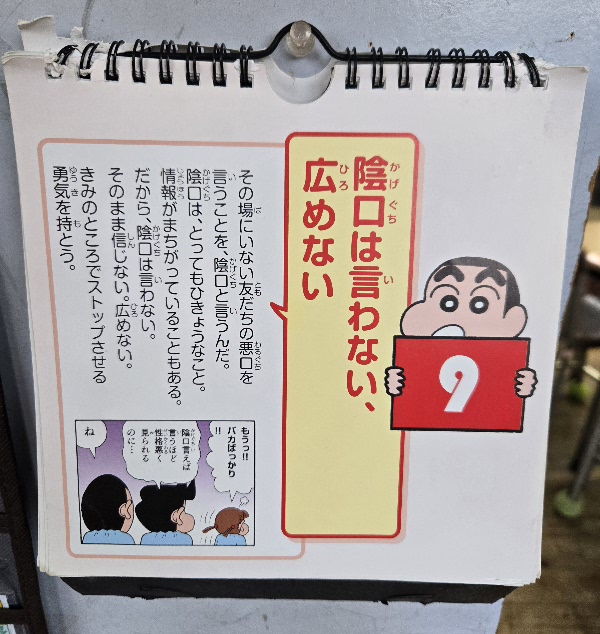 9
陰口は言わない、
広めない
その場にいない友だちの悪口を
言うことを、陰口と言うんだ。
陰口は、とってもひきょうなこと。
情報がまちがっていることもある。
だから、陰口は言わない。
そのまま信じない。広めない。
きみのところでストップさせる
勇気を持とう。
もうっ!!
バカばっかり
!!
陰口言えば
言うほど
性格悪く
見られる
のに…
ね